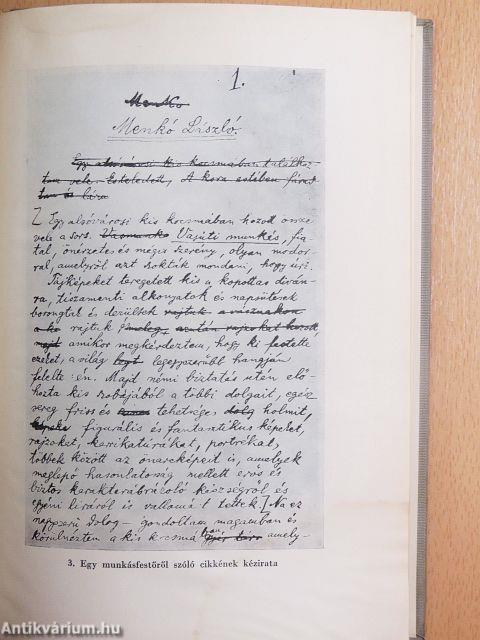 1.
Menkó
Menkó László.
Egy alsóvárosi kis kocsmában találkoz-
tam vele. Esteledett, A kora estében fárad-
tan és
Egy alsóvárosi kis kocsmában hozott össze
vele a sors. Vasmunkás Vasúti munkás, fia-
tal, önérzetes és mégis szerény, olyan modor-
ral, amelyről azt szokták mondani, hogy úri.
Tájképeket teregetett kis a kopottas díván-
ra, tiszamenti alkonyatok és napsütések
borongtak és derültek rajtuk a vásznakon
a kö rajtuk meleg, azután rajzokat hozott
majd amikor megkérdeztem, hogy ki festette
ezeket, a világ legt legegyszerűbb hangján
felelte: én. Majd némi biztatás után elő-
hozta kis szobájából a többi dolgait, egész
sereg friss és tehetséges dolg holmit,
képeke figurális és fantasztikus képeket,
rajzokat, karrikatúrákat, portrékat,
többek között az önarcképeit is, amelyek
meglepő hasonlatosság mellett erős és
biztos karakterábrázoló készségről és
líráról is vallomást tettek.] Na ez
nagyszerű dolog – gondoltam magamban és
körülnéztem a kis kocsmában, amely-
3. Egy munkásfestőről szóló cikkének kézirata
Antikvárium.hu